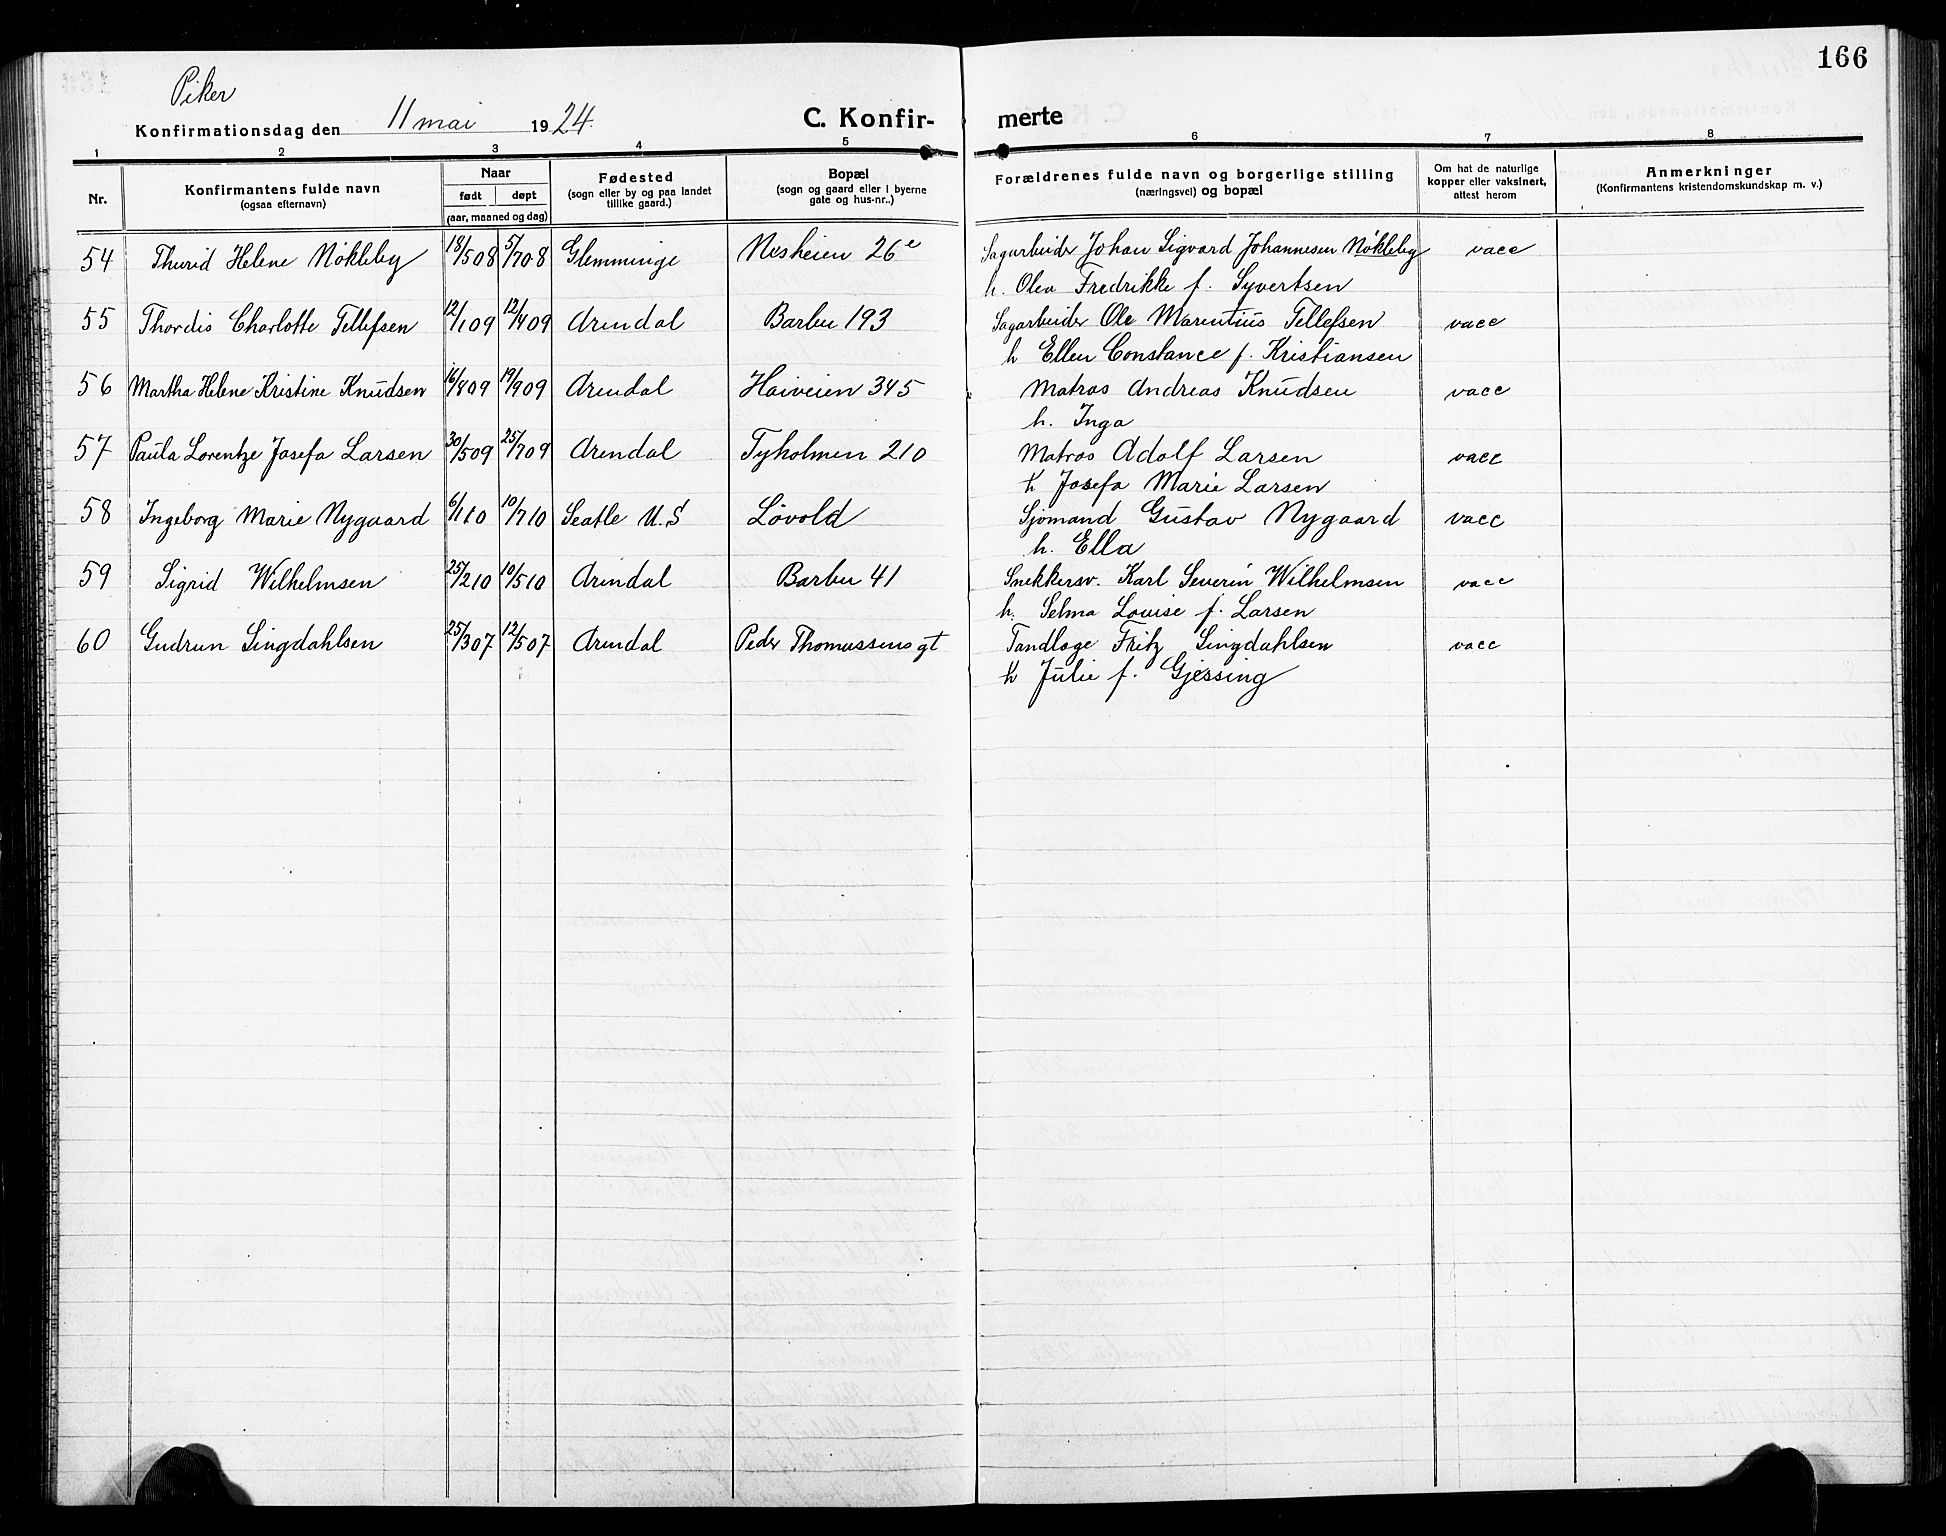 166
Piker
Konfirmationsdag den 11 mai 1924. C. Konfir- merte
1 2 3 4 5 6 7 8
Nr. Konfirmantens fulde navn (ogsaa efternavn) Naar født døpt (aar, maaned og dag) Fødested (sogn eller by og paa landet tillike gaard.) Bopæl (sogn og gaard eller i byerne gate og hus-nr..) Forældrenes fulde navn og borgerlige stilling (næringsvei) og bopæl Om hat de naturlige kopper eller vaksinert, attest herom Anmerkninger (Konfirmantens kristendomskundskap m. v.)
54 Thurid Helene Nökleby 18/5 08 5/7 08 Glemminge Nesheien 26 e Sagarbeider Johan Sigvard Johannesen Nökleby vacc
h. Olea Fredrikke f. Syvertsen
55 Thordis Charlotte Tellefsen 12/1 09 12/4 09 Arendal Barbu 193 Sagarbeider Ole Marentius Tellefsen vacc
h Ellen Constance f. Kristiansen
56 Martha Helene Kristine Knudsen 16/8 09 19/9 09 Arendal Haiveien 345 Matros Andreas Knudsen vacc
h. Inga
57 Paula Lorentze Josefa Larsen 30/5 09 25/7 09 Arendal Tyholmen 210 Matros Adolf Larsen vacc
h Josefa Marie Larsen
58 Ingeborg Marie Nygaard 6/1 10 10/7 10 Seatle U.S Lövold Sjömand Gustav Nygaard vacc
h. Ella
59 Sigrid Wilhelmsen 25/2 10 10/5 10 Arendal Barbu 41 Snekkersv. Karl Severin Wilhelmsen vacc
h. Selma Louise f. Larsen
60 Gudrun Singdahlsen 25/3 07 12/5 07 Arendal Peder Thomassensgt Tandlæge Fritz Singdahlsen vacc
h Julie f. Gjessing